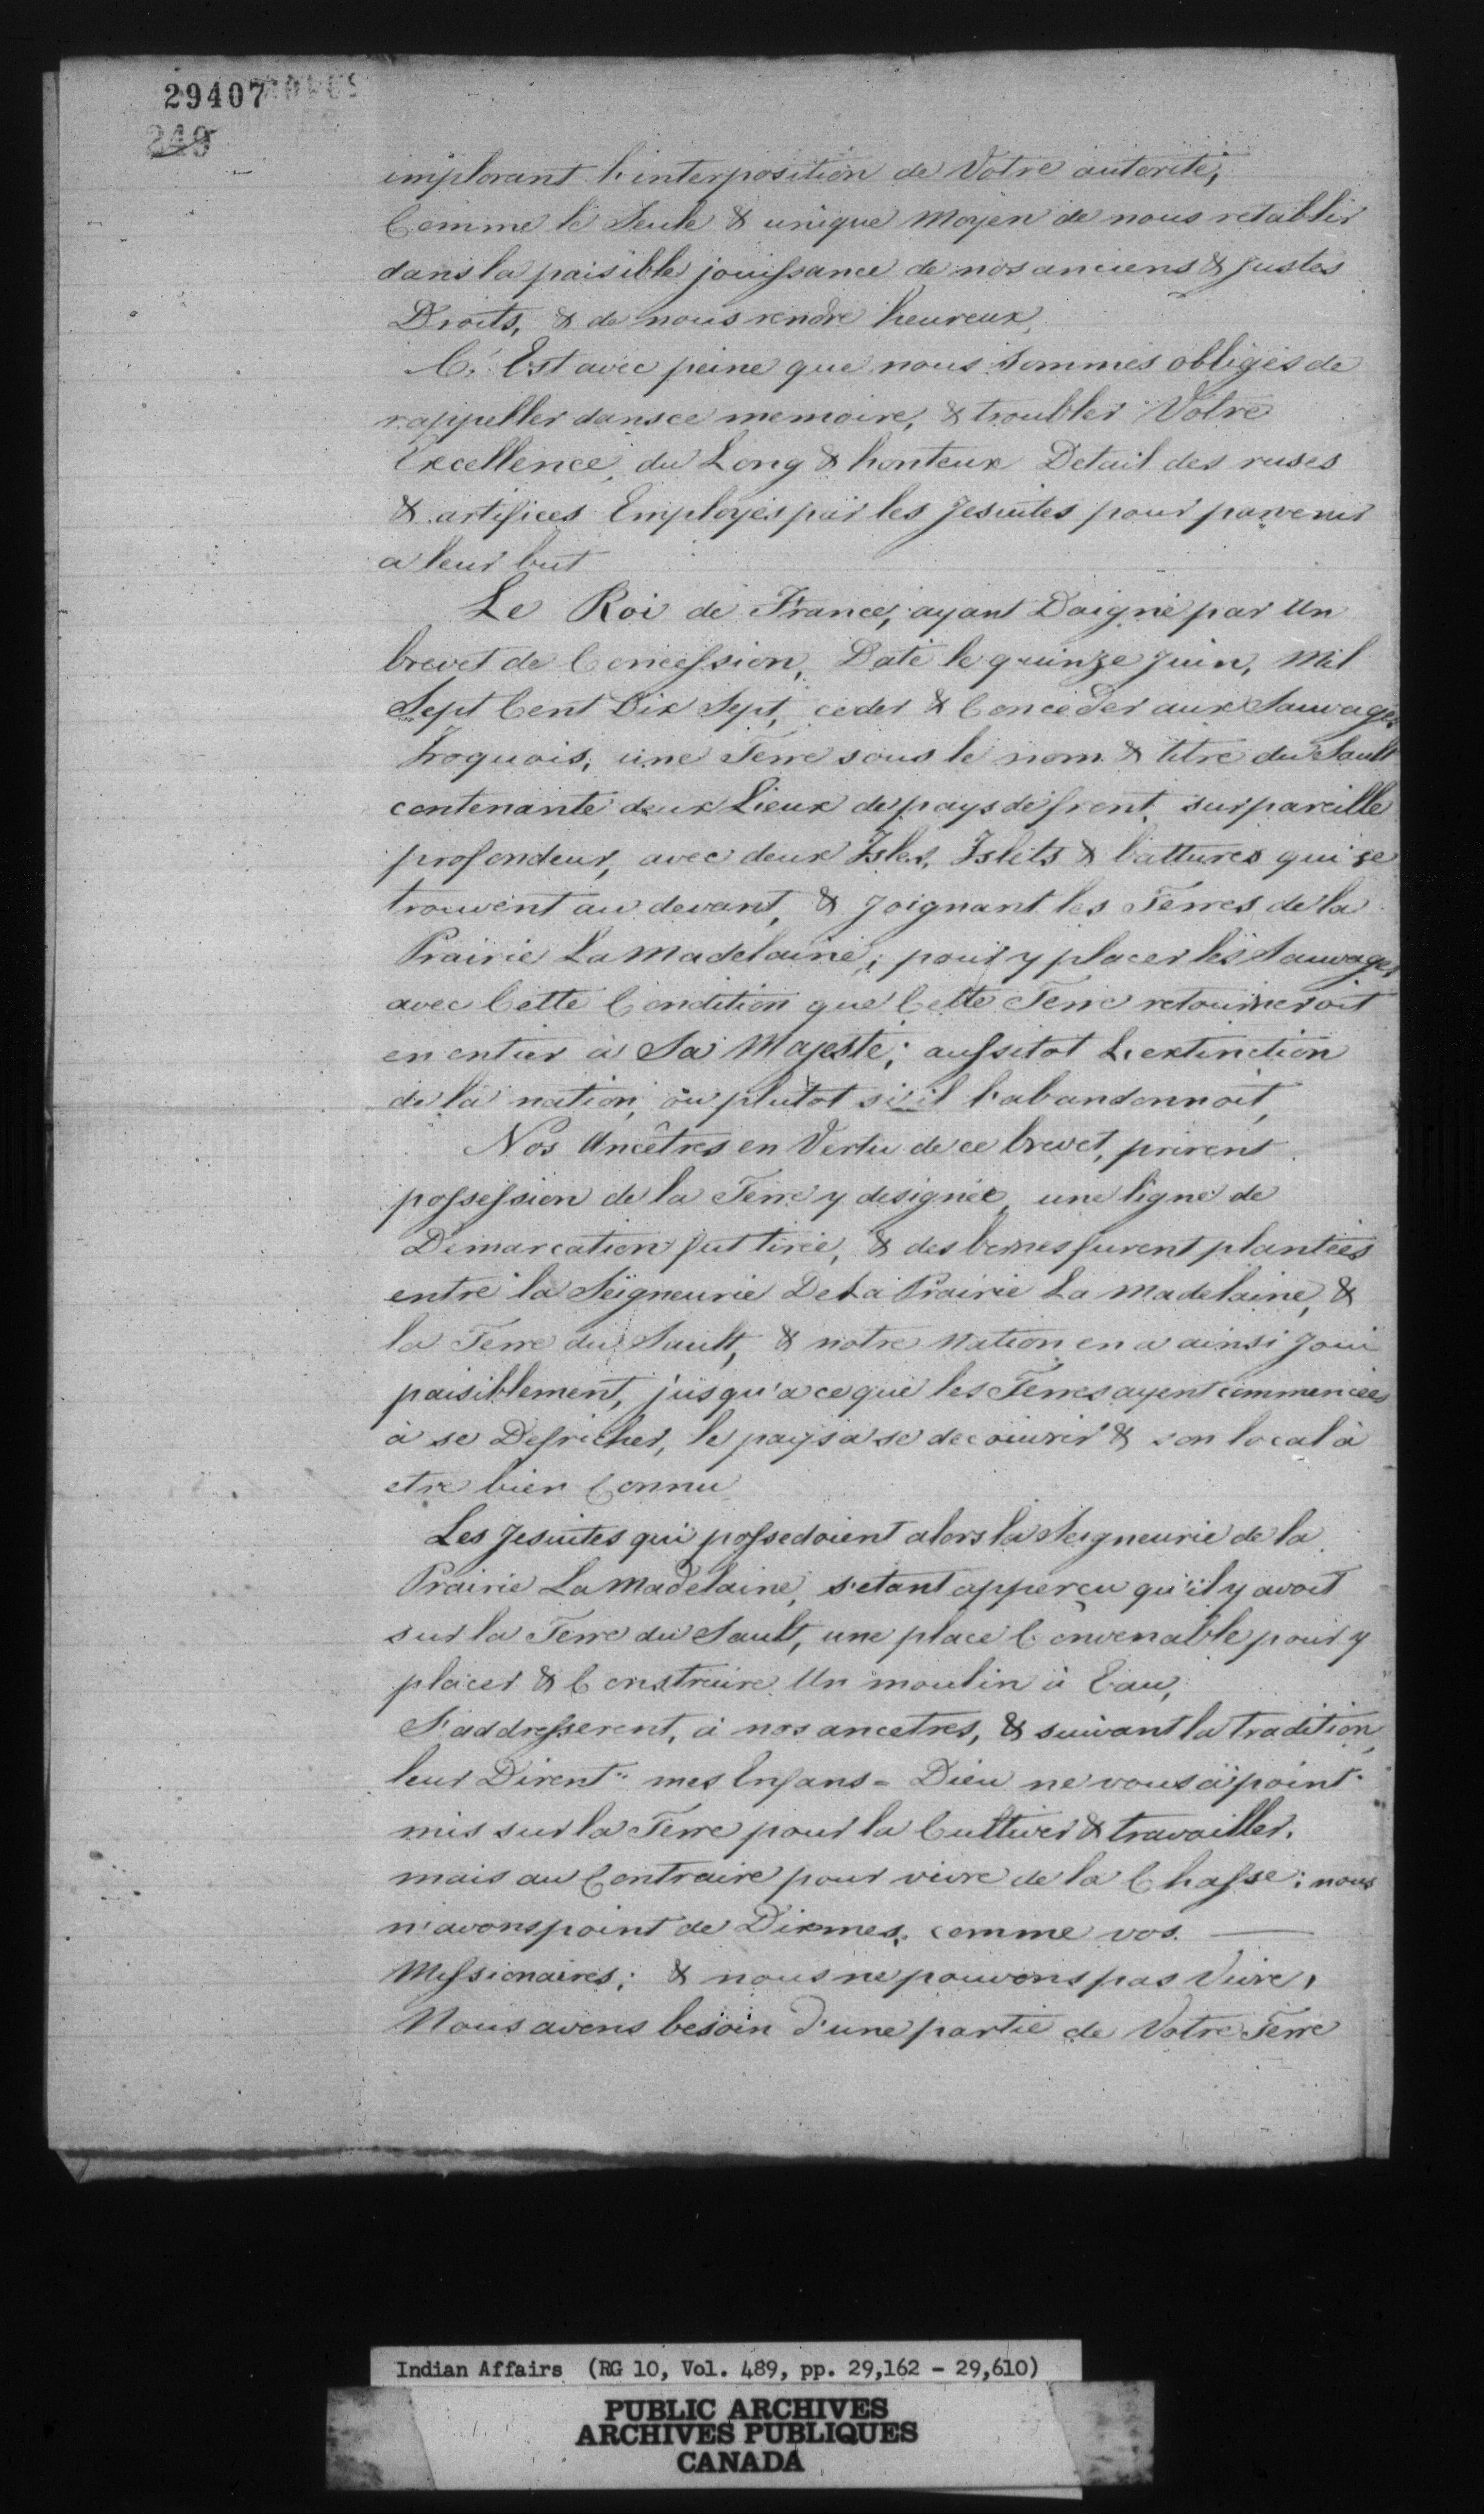 29407
249
implorant l'interposition de Votre autorité,
Comme le Seule & unique Moyen de nous retablir
dans la paisible jouissance de nos anciens & justes
Droits, & de nous rendre heureux.
C'Est avec peine que nous sommes obligés de
rappeller dans ce memoire, & troubler Votre
Excellence, du Long & honteux Detail des ruses
& artifices Employés par les Jesuites pour parvenir
a leur but
Le Roi de France, ayant Daigné par Un
brevet de Concession, Daté le quinze Juin, Mil
Sept Cent Dix Sept, ceder & Conceder aux Sauvages
Iroquois, une Terre sous le nom & titre du Sault
contenante deux Lieux de pays de front, sur pareille
profondeur, avec deux Isles, Islets & battures qui se
trouvent au devant, & Joignant les Terres de la
Prairie La Madelaine; pour y placer les Sauvages,
avec Cette Condition que Cette Terre retourneroit
en entier à Sa Majesté; aussitot L'extinction
de la nation, ou plutot si il l'abandonnoit,
Nos Ancêtres en Vertu de ce brevet, prirent
possession de la Terre y designée, une ligne de
Démarcation fut tirée, & des bornes furent plantées
entre la Seigneurie De La Prairie La Madelaine, &
la Terre du Sault, & notre Nation en a ainsi Joui
paisiblement, jusqu'a ce que les Terres ayent commencées
à se Defricher, le pays a se decouvrir & son local à
etre bien Connu
Les Jesuites qui possedoient alors la Seigneurie de la
Prairie La Madelaine, s'etant apperçu qu'il y avoit
sur la Terre du Sault, une place Convenable pour y
placer & Construire Un moulin à Eau,
S'addresserent, à nos ancetres, & suivant la tradition,
leur Dirent " mes Enfans = Dieu ne vous a point
mis sur la Terre pour la Cultiver & travailler.
mais au Contraire pour vivre de la Chasse; nous
n'avons point de Dixmes, comme vos. —
Missionaires; & nous ne pouvons pas Vivre,
Nous avons besoin d'une partie de Votre Terre
Indian Affairs (RG 10, Vol. 489, pp. 29,162 - 29,610)
PUBLIC ARCHIVES
ARCHIVES PUBLIQUES
CANADA